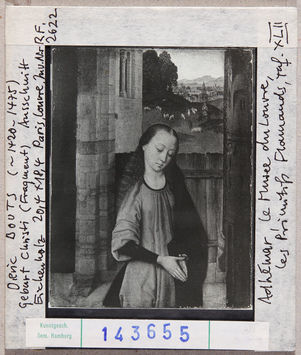 DERIC BOUTS (~1420-1475)
Geburt Christi (Fragment) Ausschnitt
Eichenholz 20,4 Paris, Louvre, Inv. Nr. R.F.
2622
Adhémar: Le Musée du Louvre,
les Primitifs Flamands, Taf. XLII
Kunstgesch.
Sem. Hamburg
143655